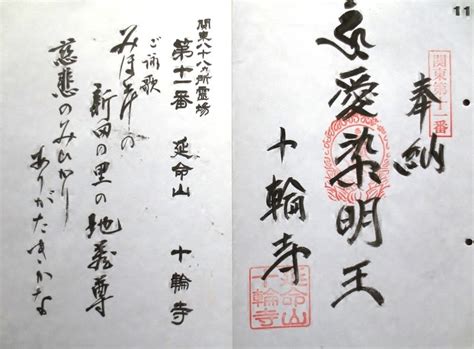 11
奉納
関東第十一番
愛染明王
十輪寺
延命山
十輪寺
関東八十八ヵ所霊場
第十一番 延命山 十輪寺
ご詠歌
新田の里の地蔵尊
慈悲のみひかり
ありがたきかな